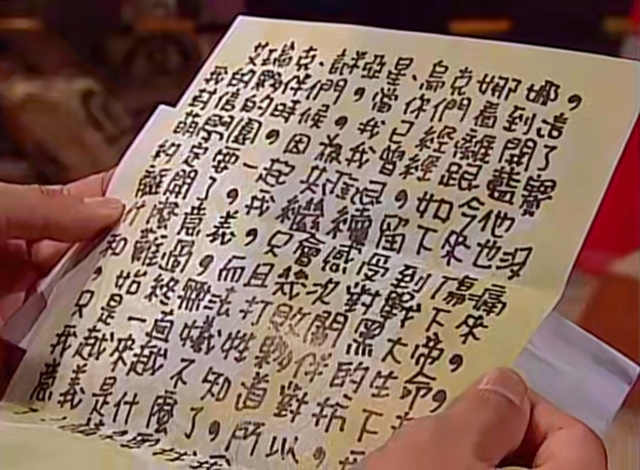 艾瑞克、許亞星、烏克娜娜,
我的夥伴們,當你們看到這
封信的時候,我已經離開了
萌學園,因為我曾經跟藍寶
約定要一起共進退,如今他
離開了,我繼續留下來也沒
什麼意義,只會感受到傷痛
和難過,而且幾次對戰下來
,始終無法打敗闇黑大帝,
只是一直犧牲夥伴的生命,
我越來越不知道對抗下
意義是什麼了,所以,